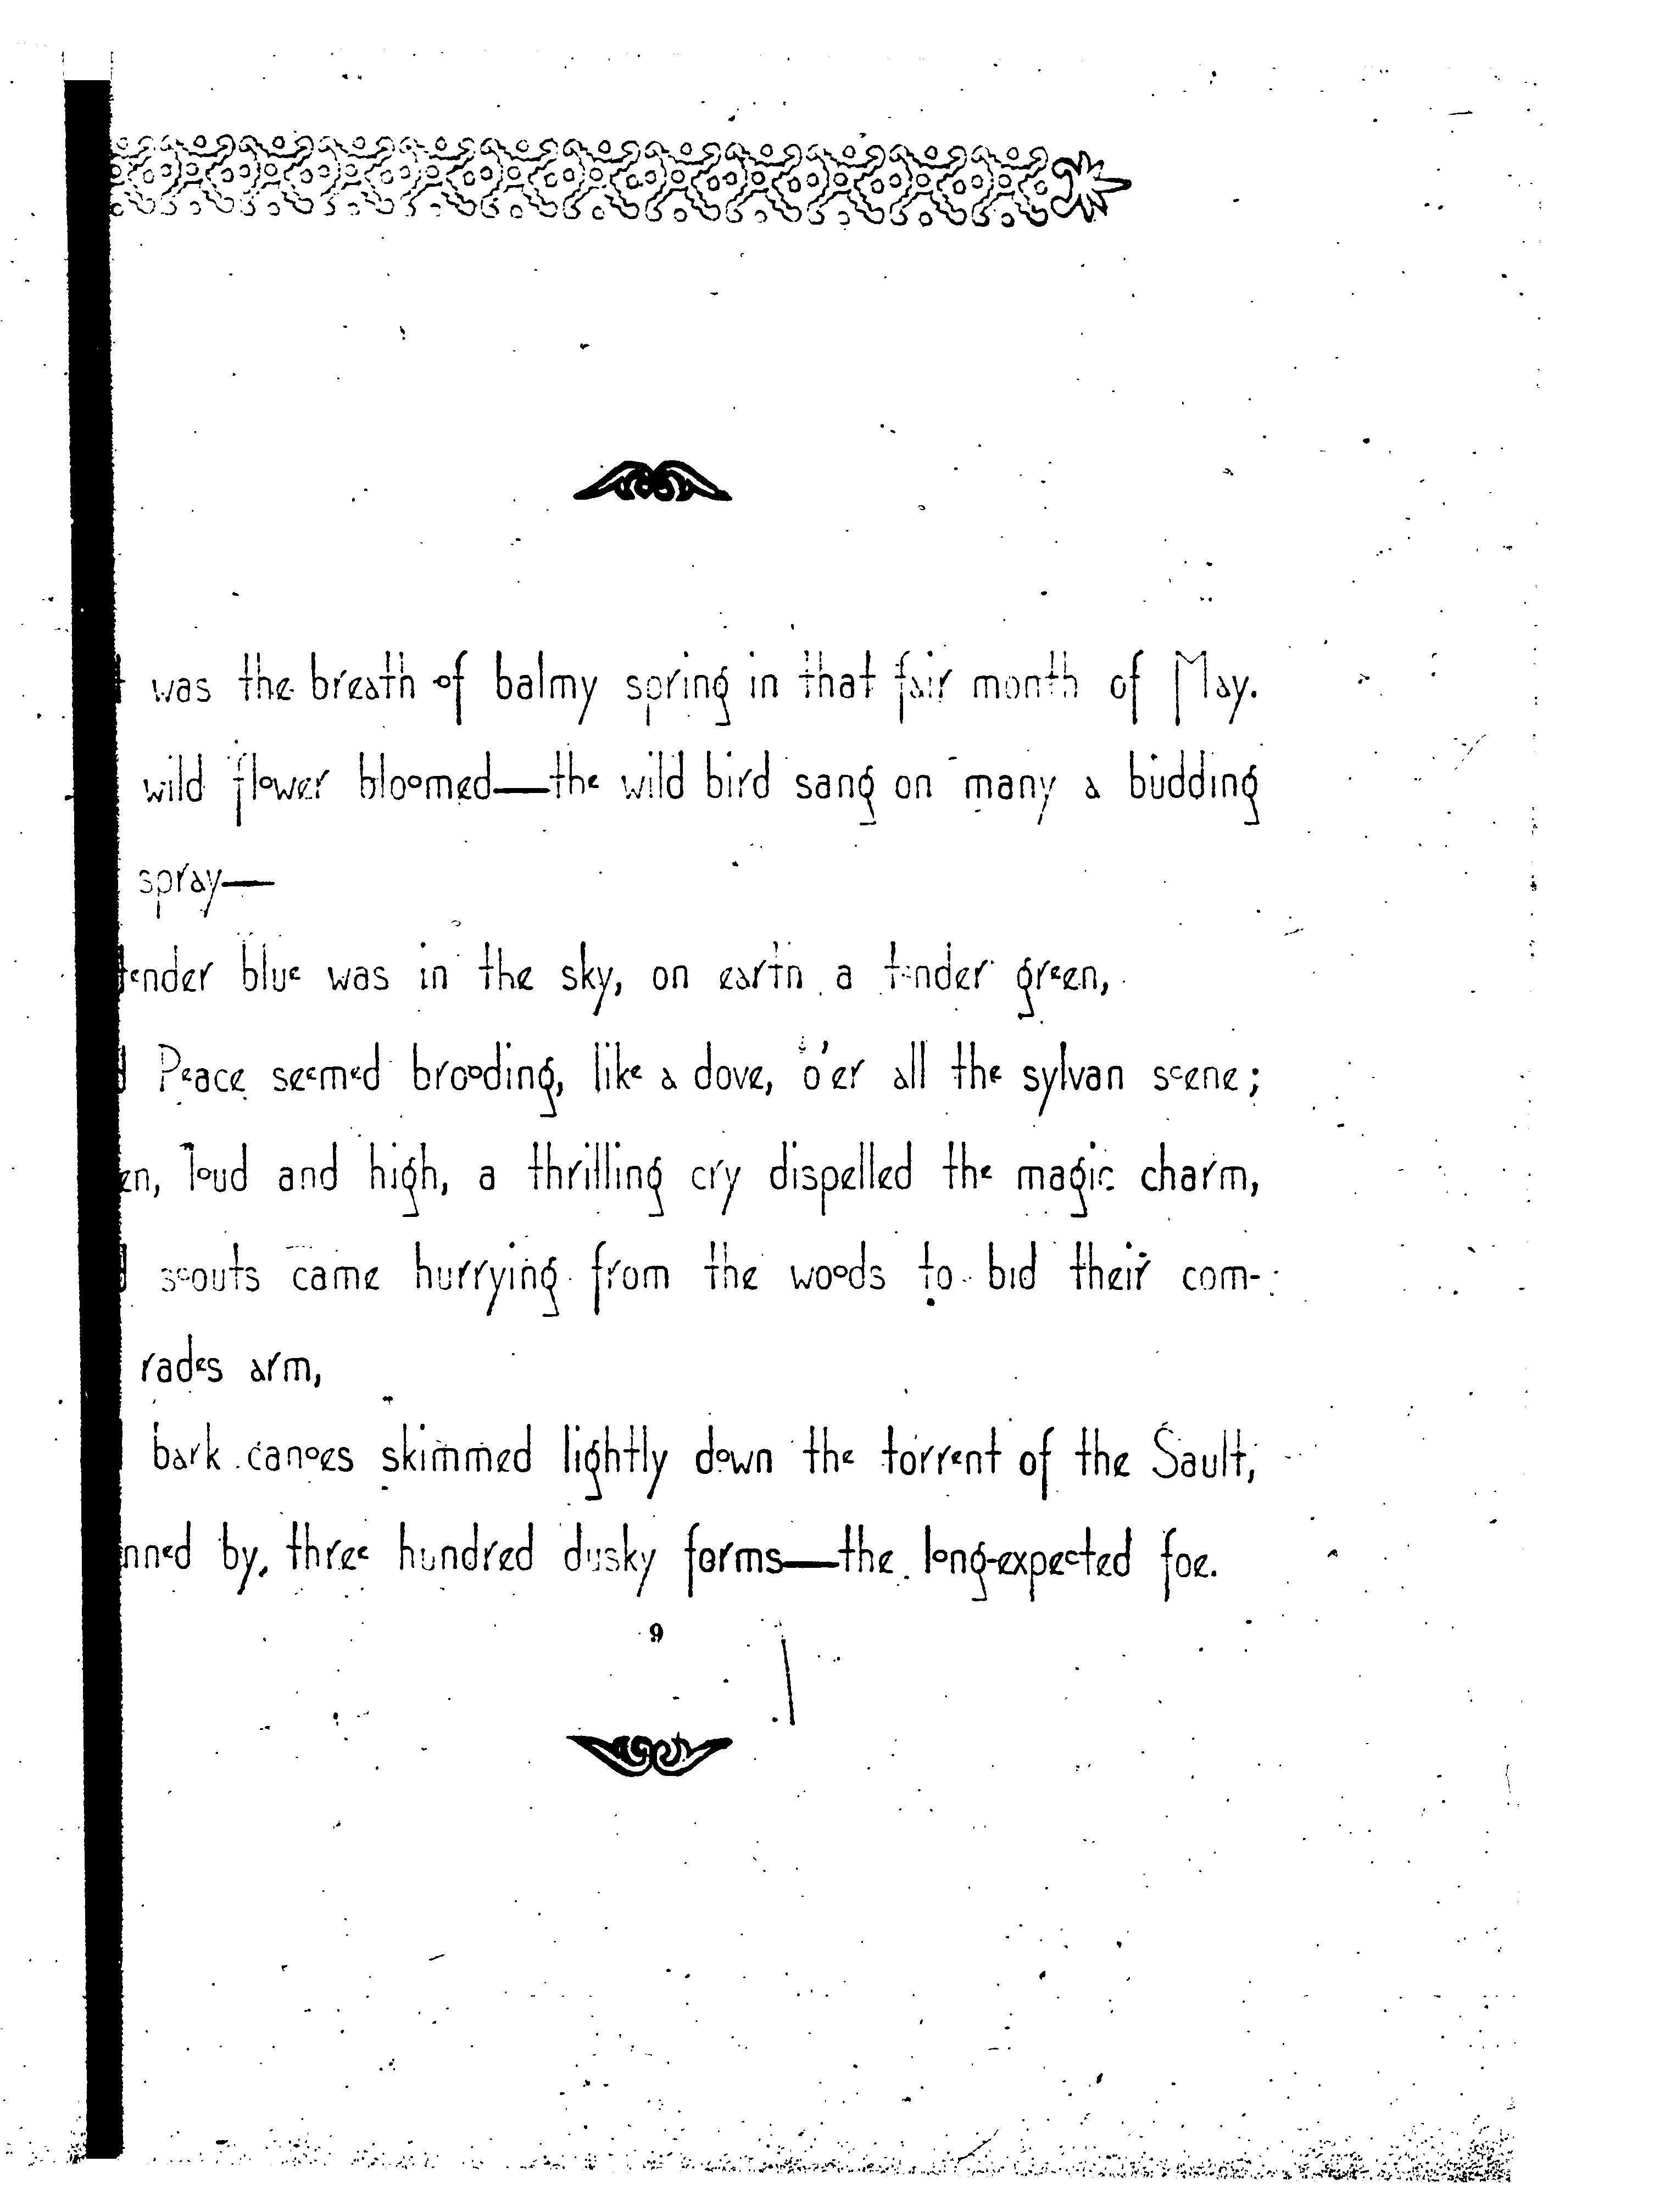 t was the breath of balmy spring in that fair month of May.
wild flower bloomed—the wild bird sang on many a budding
spray—
tender blue was in the sky, on earth a tender green,
d Peace seemed brooding, like a dove, o'er all the sylvan scene;
en, loud and high, a thrilling cry dispelled the magic charm,
d scouts came hurrying from the woods to bid their com-
rades arm,
bark canoes skimmed lightly down the torrent of the Sault,
nned by, three hundred dusky forms—the long-expected foe.
9